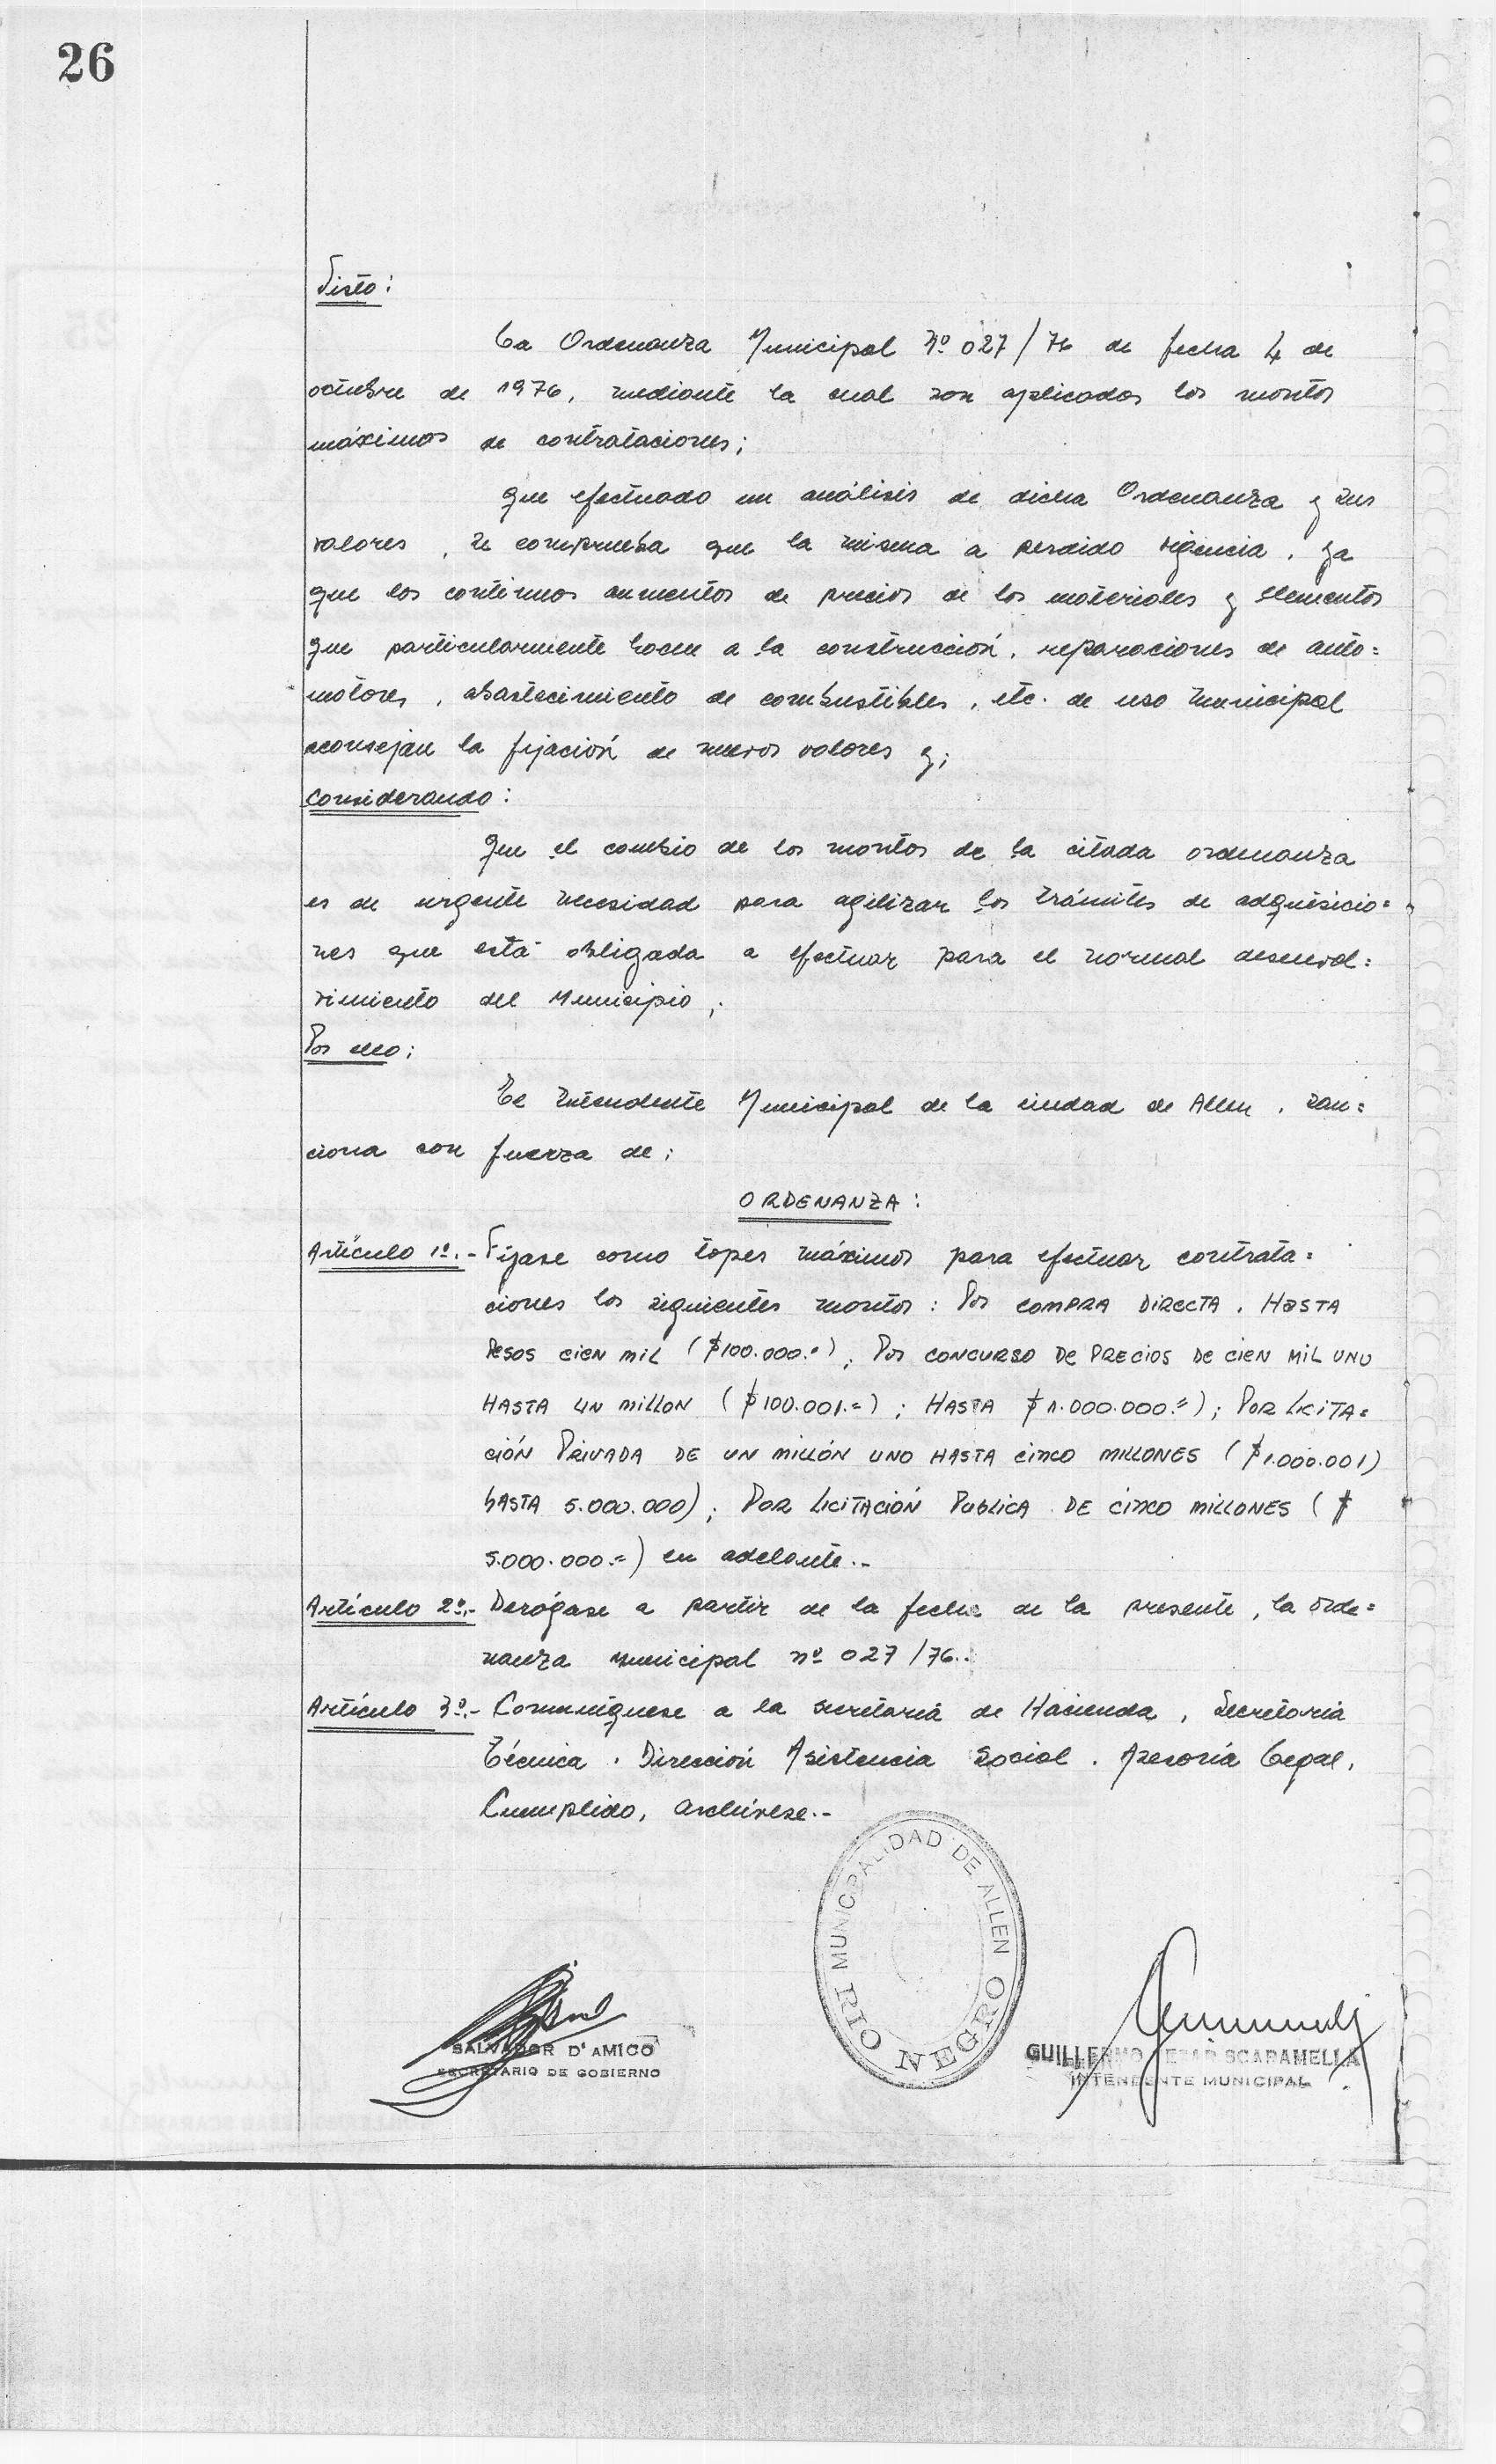 26
Visto:
La Ordenanza Municipal Nº 027/76 de fecha 4 de
octubre de 1976, mediante la cual son aplicados los montos
máximos de contrataciones;
que efectuado un análisis de dicha Ordenanza y sus
valores, se comprueba que la misma a perdido vigencia, ya
que los continuos aumentos de precios de los materiales y elementos
que particularmente hacen a la construcción, reparaciones de auto=
motores, abastecimiento de combustibles, etc. de uso municipal
aconsejan la fijación de nuevos valores y;
Considerando:
Que el cambio de los montos de la citada ordenanza
es de urgente necesidad para agilizar los trámites de adquisicio=
nes que está obligada a efectuar para el normal desenvol=
vimiento del Municipio;
Por ello:
El Intendente Municipal de la ciudad de Allen, san=
ciona con fuerza de:
ORDENANZA:
Artículo 1º.- Fíjase como topes máximos para efectuar contrata=
ciones los siguientes montos: Por COMPRA DIRECTA, HASTA
PESOS CIEN MIL ($100.000.=); Por CONCURSO DE PRECIOS DE CIEN MIL UNO
HASTA UN MILLON ($100.001.=); HASTA $1.000.000.=); POR LICITA=
CIÓN PRIVADA DE UN MILLÓN UNO HASTA CINCO MILLONES ($1.000.001)
HASTA 5.000.000); POR LICITACIÓN PUBLICA DE CINCO MILLONES ($
5.000.000.=) en adelante.-
Artículo 2º.- Derógase a partir de la fecha de la presente, la orde=
nanza municipal nº 027/76.-
Artículo 3º.- Comuníquese a la secretaría de Hacienda, Secretaría
Técnica, Dirección Asistencia Social, Asesoría Legal,
Cumplido, archívese.-
MUNICIPALIDAD DE ALLEN
RIO NEGRO
SALVADOR D'AMICO
SECRETARIO DE GOBIERNO
GUILLERMO CESAR SCARAMELLA
INTENDENTE MUNICIPAL